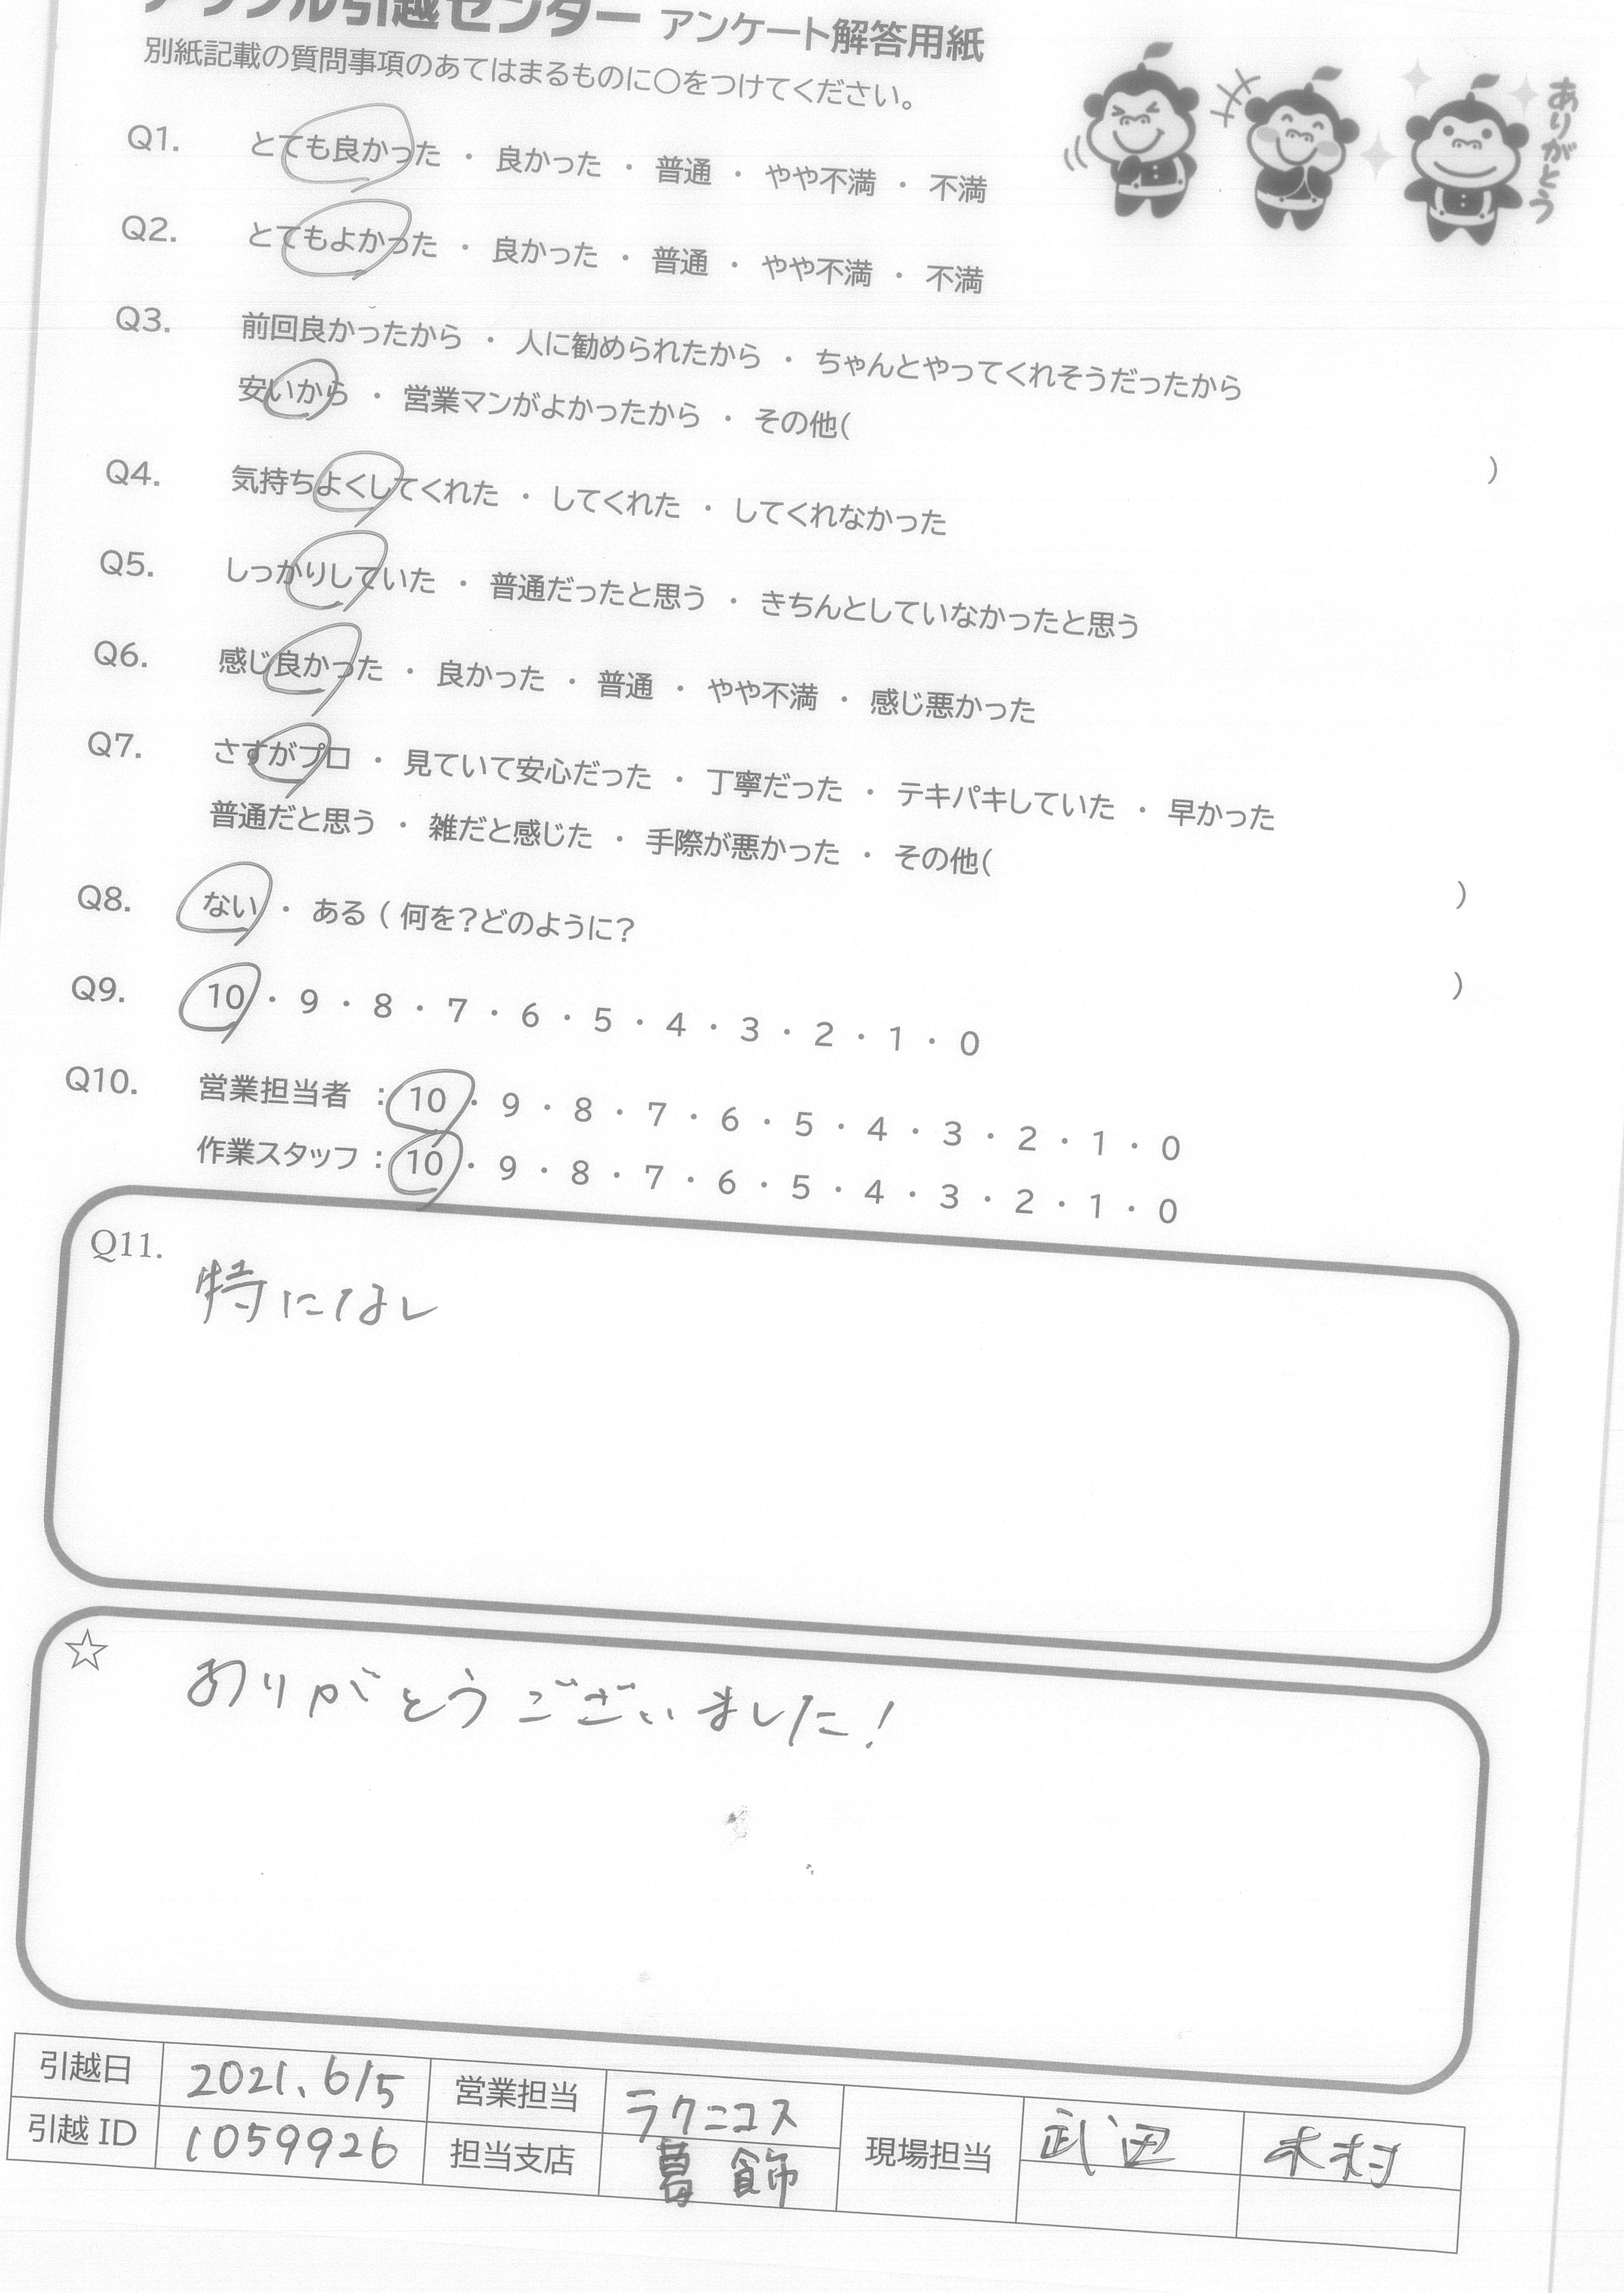 アップル引越センター アンケート解答用紙
別紙記載の質問事項のあてはまるものに〇をつけてください。
ありがとう
Q1. とても良かった ・ 良かった ・ 普通 ・ やや不満 ・ 不満
Q2. とてもよかった ・ 良かった ・ 普通 ・ やや不満 ・ 不満
Q3. 前回良かったから ・ 人に勧められたから ・ ちゃんとやってくれそうだったから
安いから ・ 営業マンがよかったから ・ その他( )
Q4. 気持ちよくしてくれた ・ してくれた ・ してくれなかった
Q5. しっかりしていた ・ 普通だったと思う ・ きちんとしていなかったと思う
Q6. 感じ良かった ・ 良かった ・ 普通 ・ やや不満 ・ 感じ悪かった
Q7. さすがプロ ・ 見ていて安心だった ・ 丁寧だった ・ テキパキしていた ・ 早かった
普通だと思う ・ 雑だと感じた ・ 手際が悪かった ・ その他( )
Q8. ない ・ ある ( 何を?どのように? )
Q9. 10 ・ 9 ・ 8 ・ 7 ・ 6 ・ 5 ・ 4 ・ 3 ・ 2 ・ 1 ・ 0
Q10. 営業担当者 : 10 ・ 9 ・ 8 ・ 7 ・ 6 ・ 5 ・ 4 ・ 3 ・ 2 ・ 1 ・ 0
作業スタッフ : 10 ・ 9 ・ 8 ・ 7 ・ 6 ・ 5 ・ 4 ・ 3 ・ 2 ・ 1 ・ 0
Q11.
特になし
☆
ありがとうございました!
引越日 2021.6/5 営業担当 ラクニコス 現場担当 武田 木村
引越 ID 1059926 担当支店 葛飾